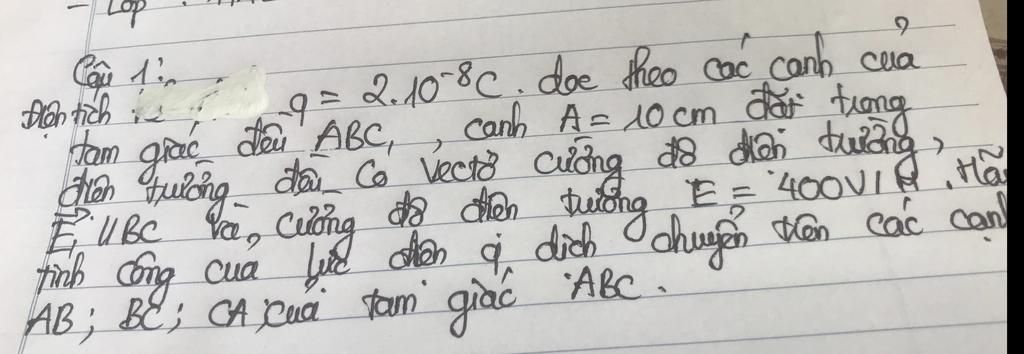 - Lớp
Câu 1:
Điện tích q = 2.10⁻⁸C. dọc theo các cạnh của
tam giác đều ABC, , cạnh A = 10 cm đặt trong
điện trường đều Có Vectơ cường độ điện trường,
E⃗ // BC Và, cường độ điện trường E = 400V/ . Hãy
tính công của lực điện q dịch chuyển trên các cạnh
AB; BC; CA, của tam giác ABC.